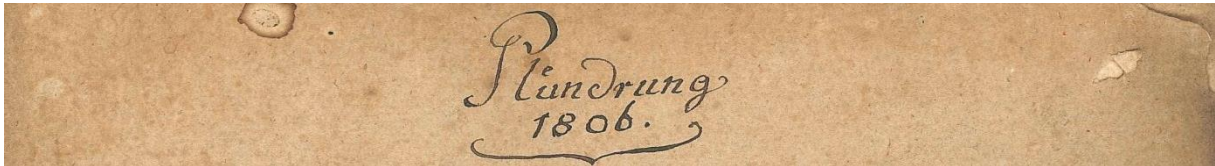 Plündrung
1806.